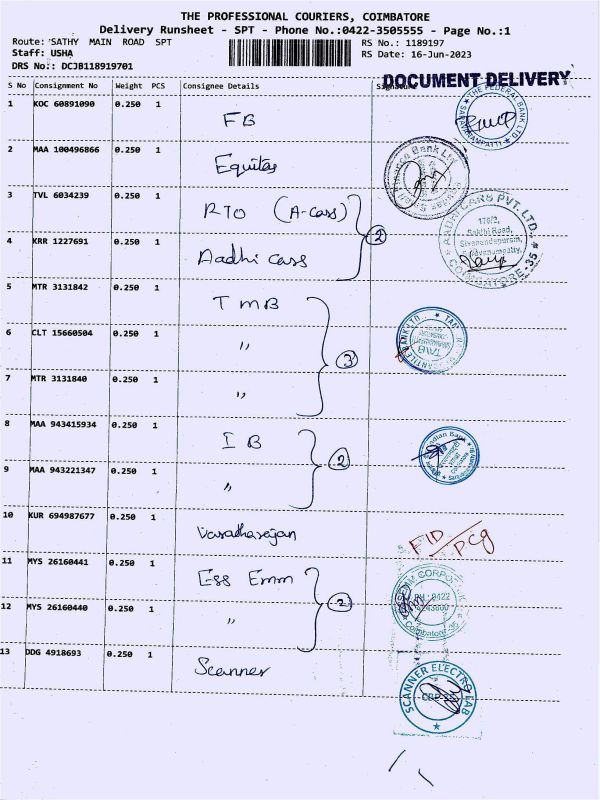 THE PROFESSIONAL COURIERS, COIMBATORE
Delivery Runsheet - SPT - Phone No.:0422-3505555 - Page No.:1
Route: SATHY MAIN ROAD SPT
RS No.: 1189197
Staff: USHA
RS Date: 16-Jun-2023
DRS No:: DCJB118919701
DOCUMENT DELIVERY
S No Consignment No Weight PCS Consignee Details Signature
1 KOC 60891090 0.250 1 FB
THE FEDERAL BANK LTD.
2 MAA 100496866 0.250 1 Equitas
Finance Bank Ltd
3 TVL 6034239 0.250 1 RTO (A-cars)
2
AADHI CARS PVT. LTD.
176/2,
Sakthi Road,
Sivanandapuram,
COIMBATORE-35
4 KRR 1227691 0.250 1 Aadhi cars
5 MTR 3131842 0.250 1 TMB
6 CLT 15660504 0.250 1 "
3
TMB
7 MTR 3131840 0.250 1 "
8 MAA 943415934 0.250 1 IB
2
Indian Bank
9 MAA 943221347 0.250 1 "
10 KUR 694987677 0.250 1 Varadharajan
FID/PCG
11 MYS 26160441 0.250 1 Ess Emm
2
PH: 0422
Coimbatore-35
12 MYS 26160440 0.250 1 "
13 DDG 4918693 0.250 1 Scanner
SCANNER ELECTRO LAB